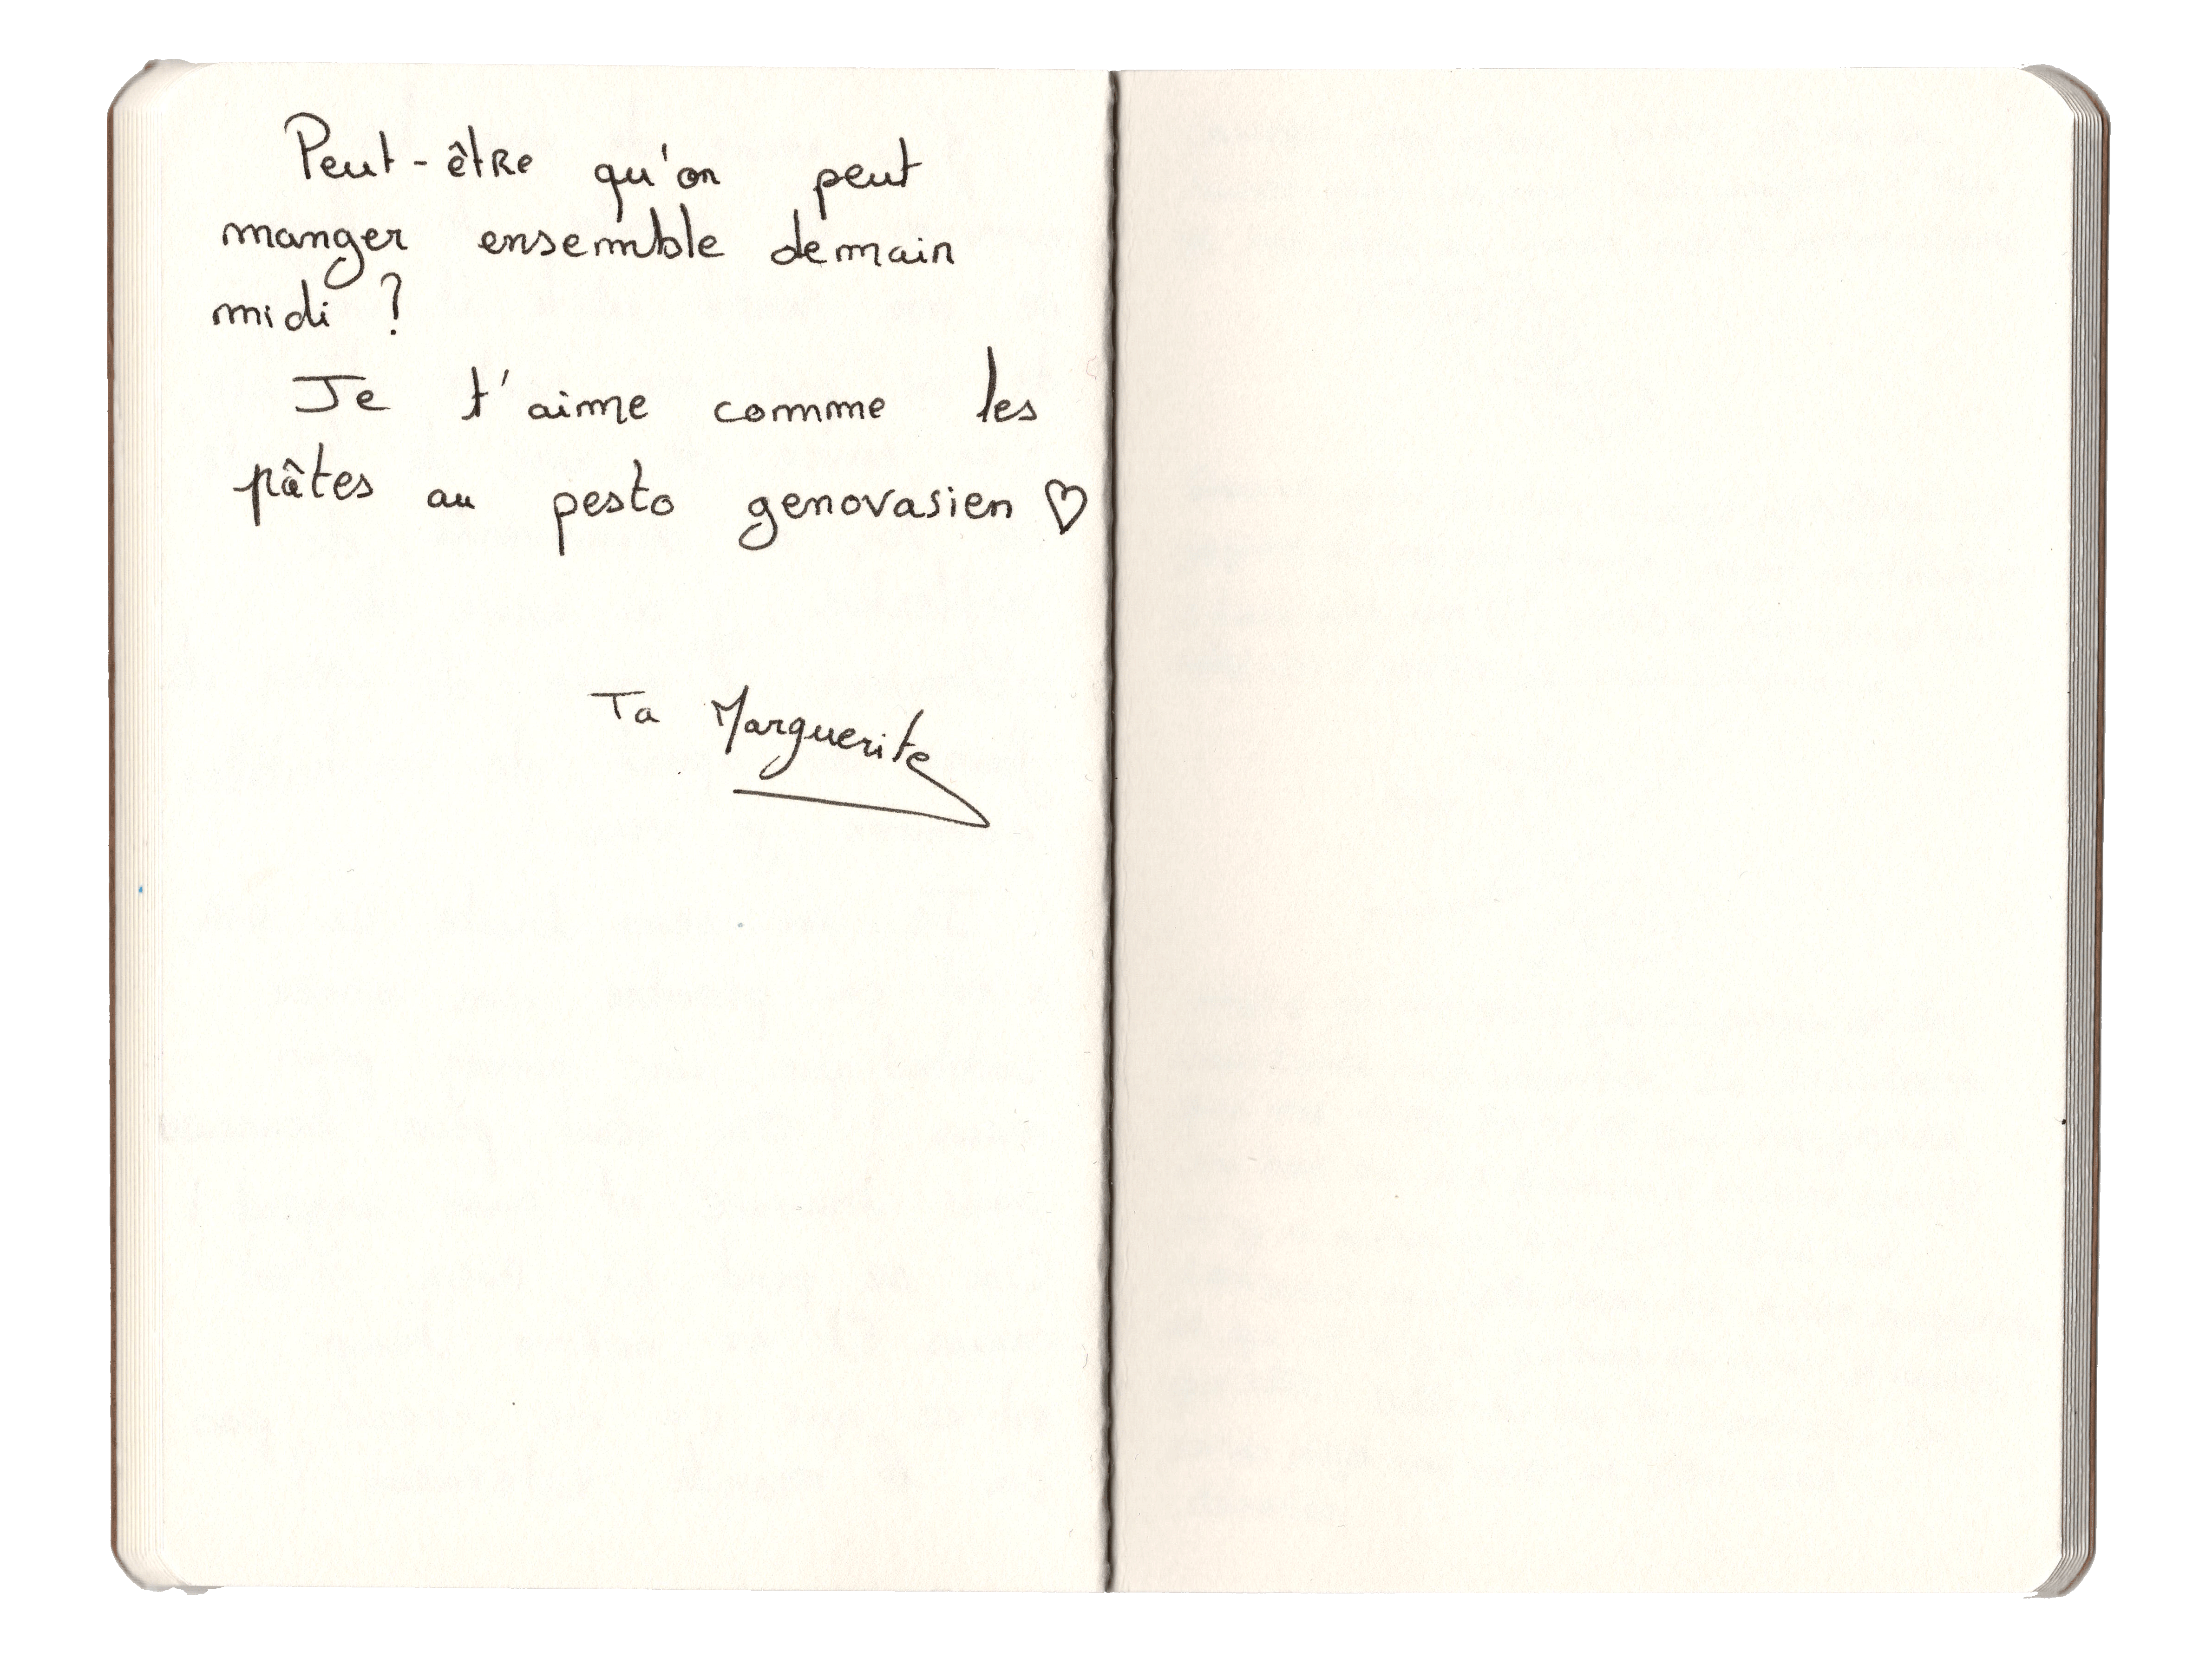 Peut-être qu'on peut
manger ensemble demain
midi ?
Je t'aime comme les
pâtes au pesto genovasien ♡
Ta Marguerite